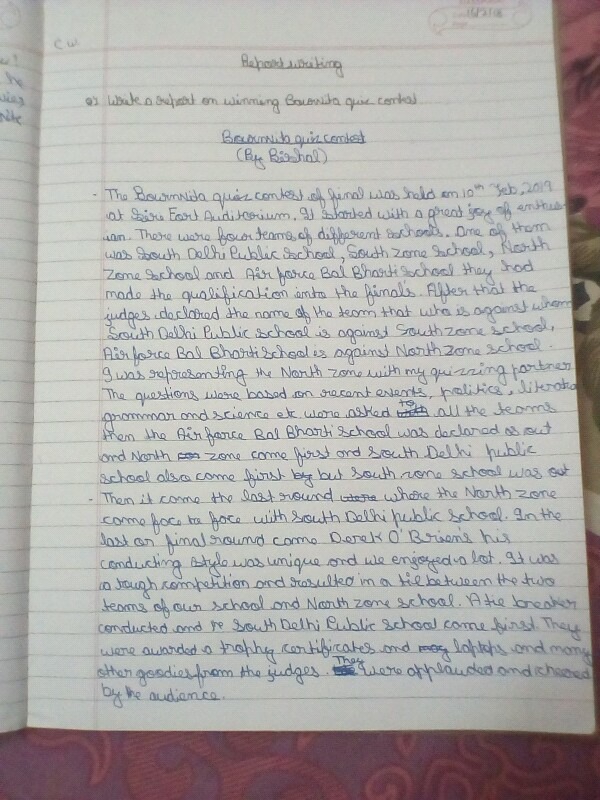 C W
Report writing
Q) Write a report on winning Bournvita quiz contest
Bournvita quiz contest
(By Bishal)
- The Bournvita quiz contest of final was held on 10th Feb, 2019
at Sire Fort Auditorium. It started with a great joy of enthus-
ian. There were four teams of different schools. One of them
was South Delhi Public School, South zone School, North
Zone School and Air force Bal Bharti School they had
made the qualification into the finals. After that the
judges declared the name of the team that who is against whom
South Delhi Public school is against South zone school,
Air force Bal Bharti School is against North Zone school.
I was representing the North zone with my quizzing partner
The questions were based on recent events, politics, literatu
grammar and science etc were asked to all the teams
then the Air force Bal Bharti School was declared as out
and North zone come first and South Delhi public
school also come first but South zone school was out
- Then it come the last round where the North zone
come face to face with South Delhi public school. In the
last or final round came Derek O'Briens his
conducting style was unique and we enjoyed a lot. It was
a tough competition and resulted in a tie between the two
teams of our school and North zone school. A tie breaker
conducted and South Delhi Public School came first. They
were awarded a trophy certificates and laptops and many
other goodies from the judges. They were applauded and cheered
by the audience.